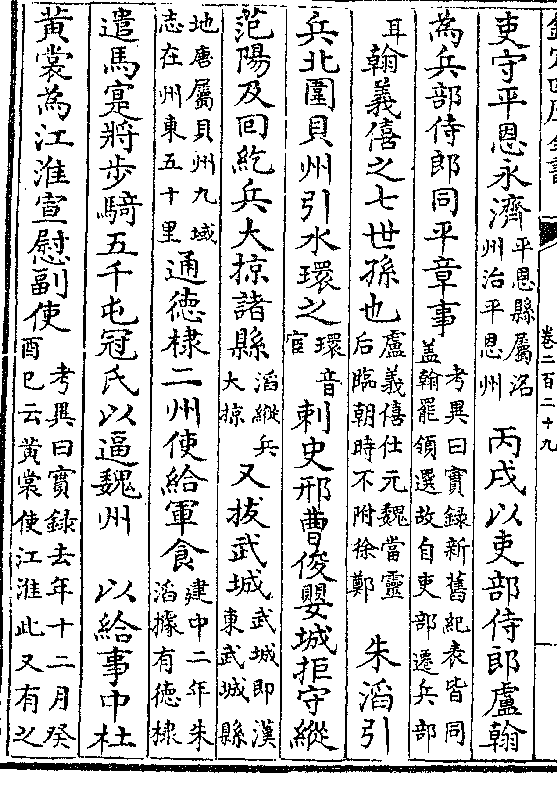 卷二百二十九
吏守平恩永濟平恩縣屬洺州治平恩州丙戌以吏部侍郎盧翰
為兵部侍郎同平章事考異曰實録新舊紀表皆同蓋翰罷領選故自吏部遷兵部
耳翰義僖之七世孫也盧義僖仕元魏當靈后臨朝時不附徐鄭朱滔引
兵北圍貝州引水環之環音官刺史邢曹俊嬰城拒守縱
范陽及回紇兵大掠諸縣滔縱兵大掠又拔武城武城即漢東武城縣
地唐屬貝州九域志在州東五十里通德棣二州使給軍食建中二年朱滔據有德棣
遣馬寔將步騎五千屯冠氏以逼魏州 以給事中杜
黃裳為江淮宣慰副使考異曰實録去年十二月癸酉巳云黃裳使江淮此又有之